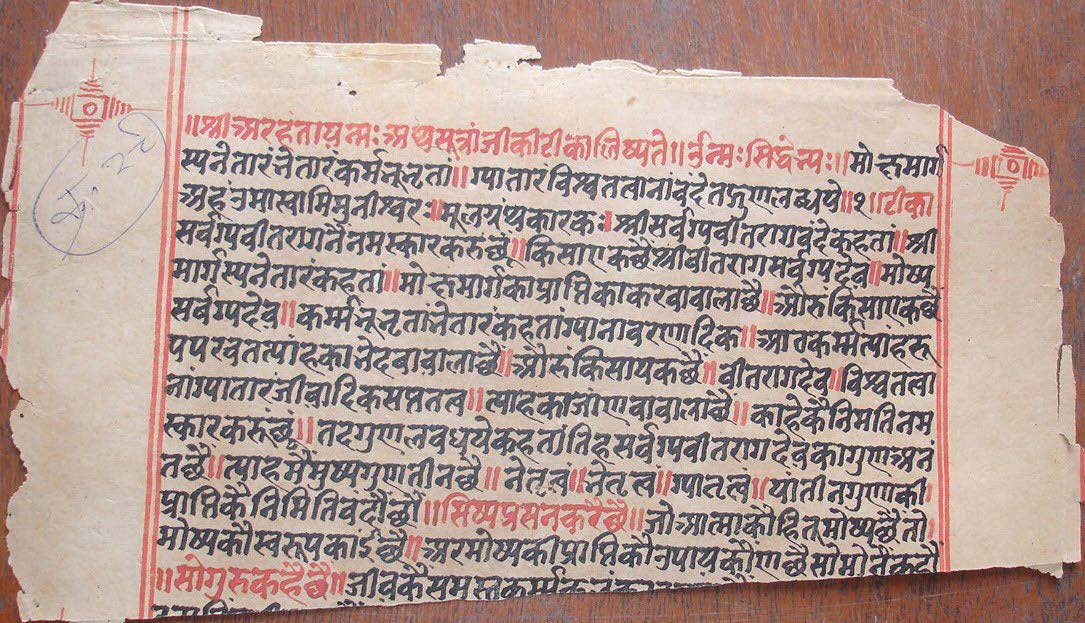 ॥श्रीअरहंतायन्मः अथसूत्रांजीकीटीकालिष्यते॥ ॐन्मःसिद्धेन्यः॥ मोक्षमार्ग
स्यनेतारंभेतारंकर्मभूभृतां॥ ग्यातारंविश्वतत्वानांवंदेतद्गुणलब्धये॥१॥टीका
अहंउमास्वामिमुनीश्वरः॥मूलग्रंथकारकः॥श्रीसर्वग्यवीतरागवंदेकहतां॥श्री
सर्वग्यवीतरागनैनमस्कारकरुछूं॥किसाएकछैश्रीवीतरागसर्वग्यदेव॥मोष्य
मार्गस्यनेतारंकहतां॥मोक्षमार्गकाप्राप्तिकाकरवावालाछै॥औरुकिसाएकछै
सर्वग्यदेव॥कर्म्मभूभृतांभेतारंकहतांग्यानावरणादिक॥आठकर्म्मत्यांहरू
पपरवतत्यांहकाभेदवावालाछै॥औरुंकिसायकछै॥वीतरागदेव॥विश्वतत्वा
नांग्यातारंजीवादिकसप्ततत्व॥त्याहकाजांणवावालाछै॥काहेकैनिमतिनम
स्कारकरुंछूं॥तदगुणलवधयेकहतांतिहसर्वग्यवीतरागदेवकागुणअनं
तछै॥त्याहमैमुष्यगुणतीनछै॥भेतृत्वं॥नेतृत्व॥ग्यातृत्वं॥यांतीनगुणाकी
प्राप्तिकैनिमितिवंदौंछौं॥सिष्यप्रसनकरैछै॥जोआत्माकौहितूमोष्यछैतो
मोष्यकौस्वरूपकाईछै॥अरमोष्यकीप्राप्तिकौउपायकौणछैसोमोनैंकहौं
॥सोगुरुकहैछै॥जीवकैसमस्तकर्म्म